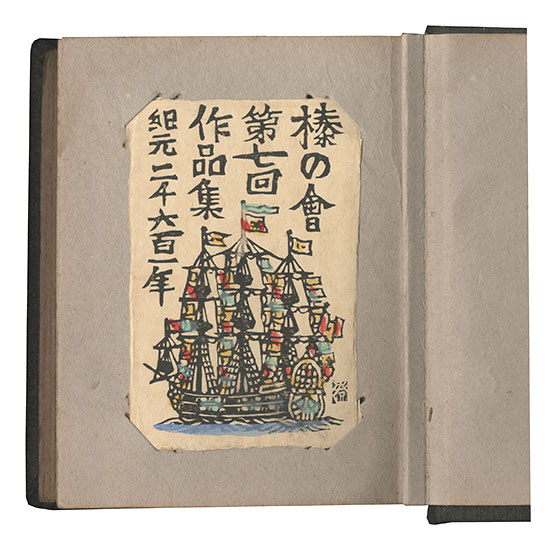 榛の會
第七回
作品集
紀元二千六百一年